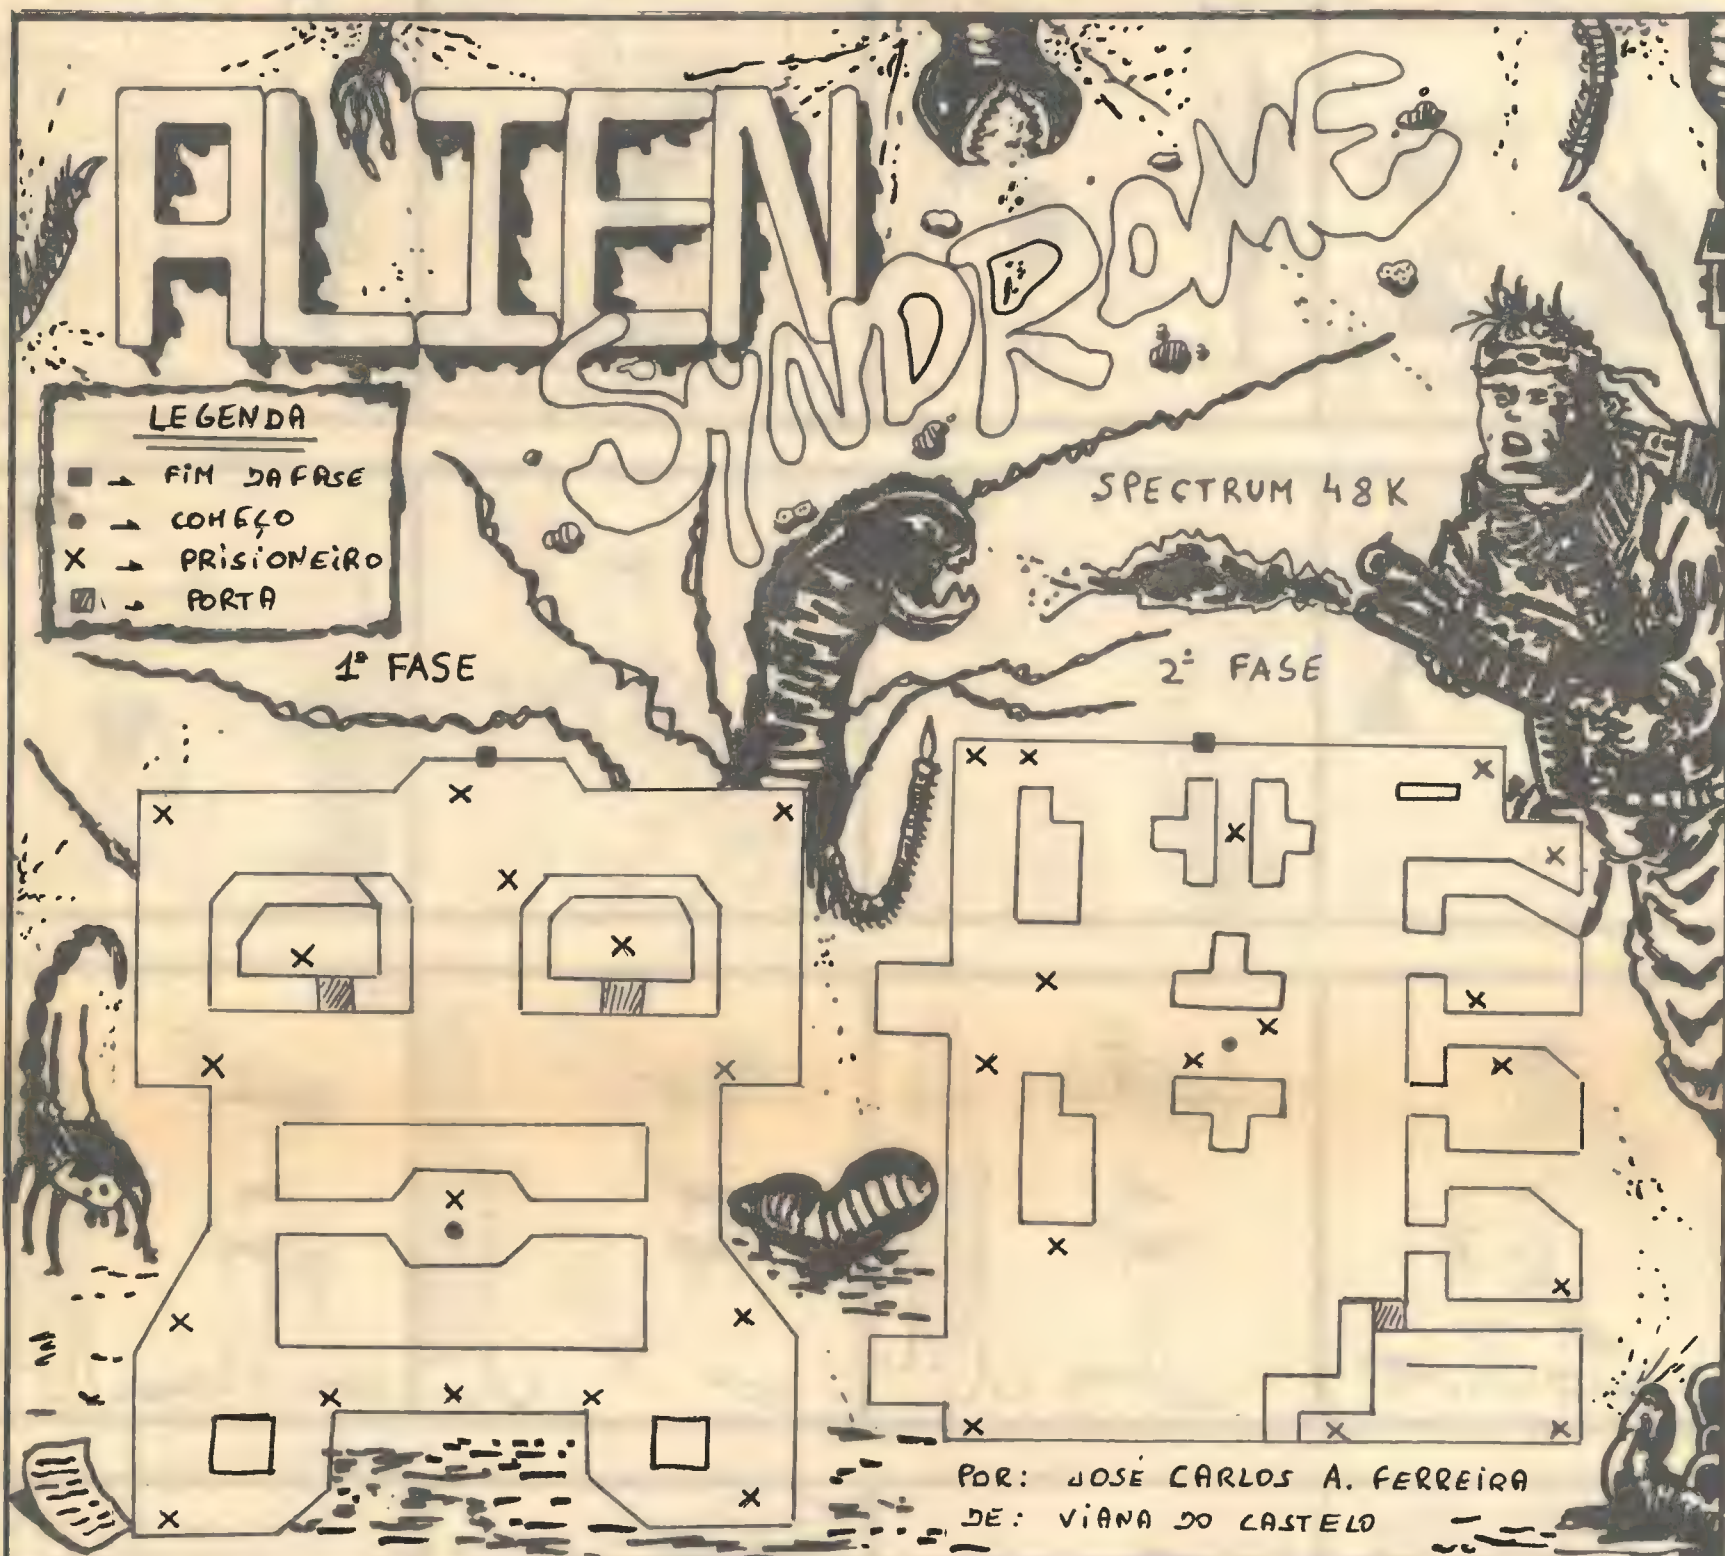 ALIEN
SYNDROME
LEGENDA
■ → FIM DA FASE
● → COMEÇO
X → PRISIONEIRO
▨ → PORTA
SPECTRUM 48K
1ª FASE
2ª FASE
POR: JOSÉ CARLOS A. FERREIRA
DE: VIANA DO CASTELO